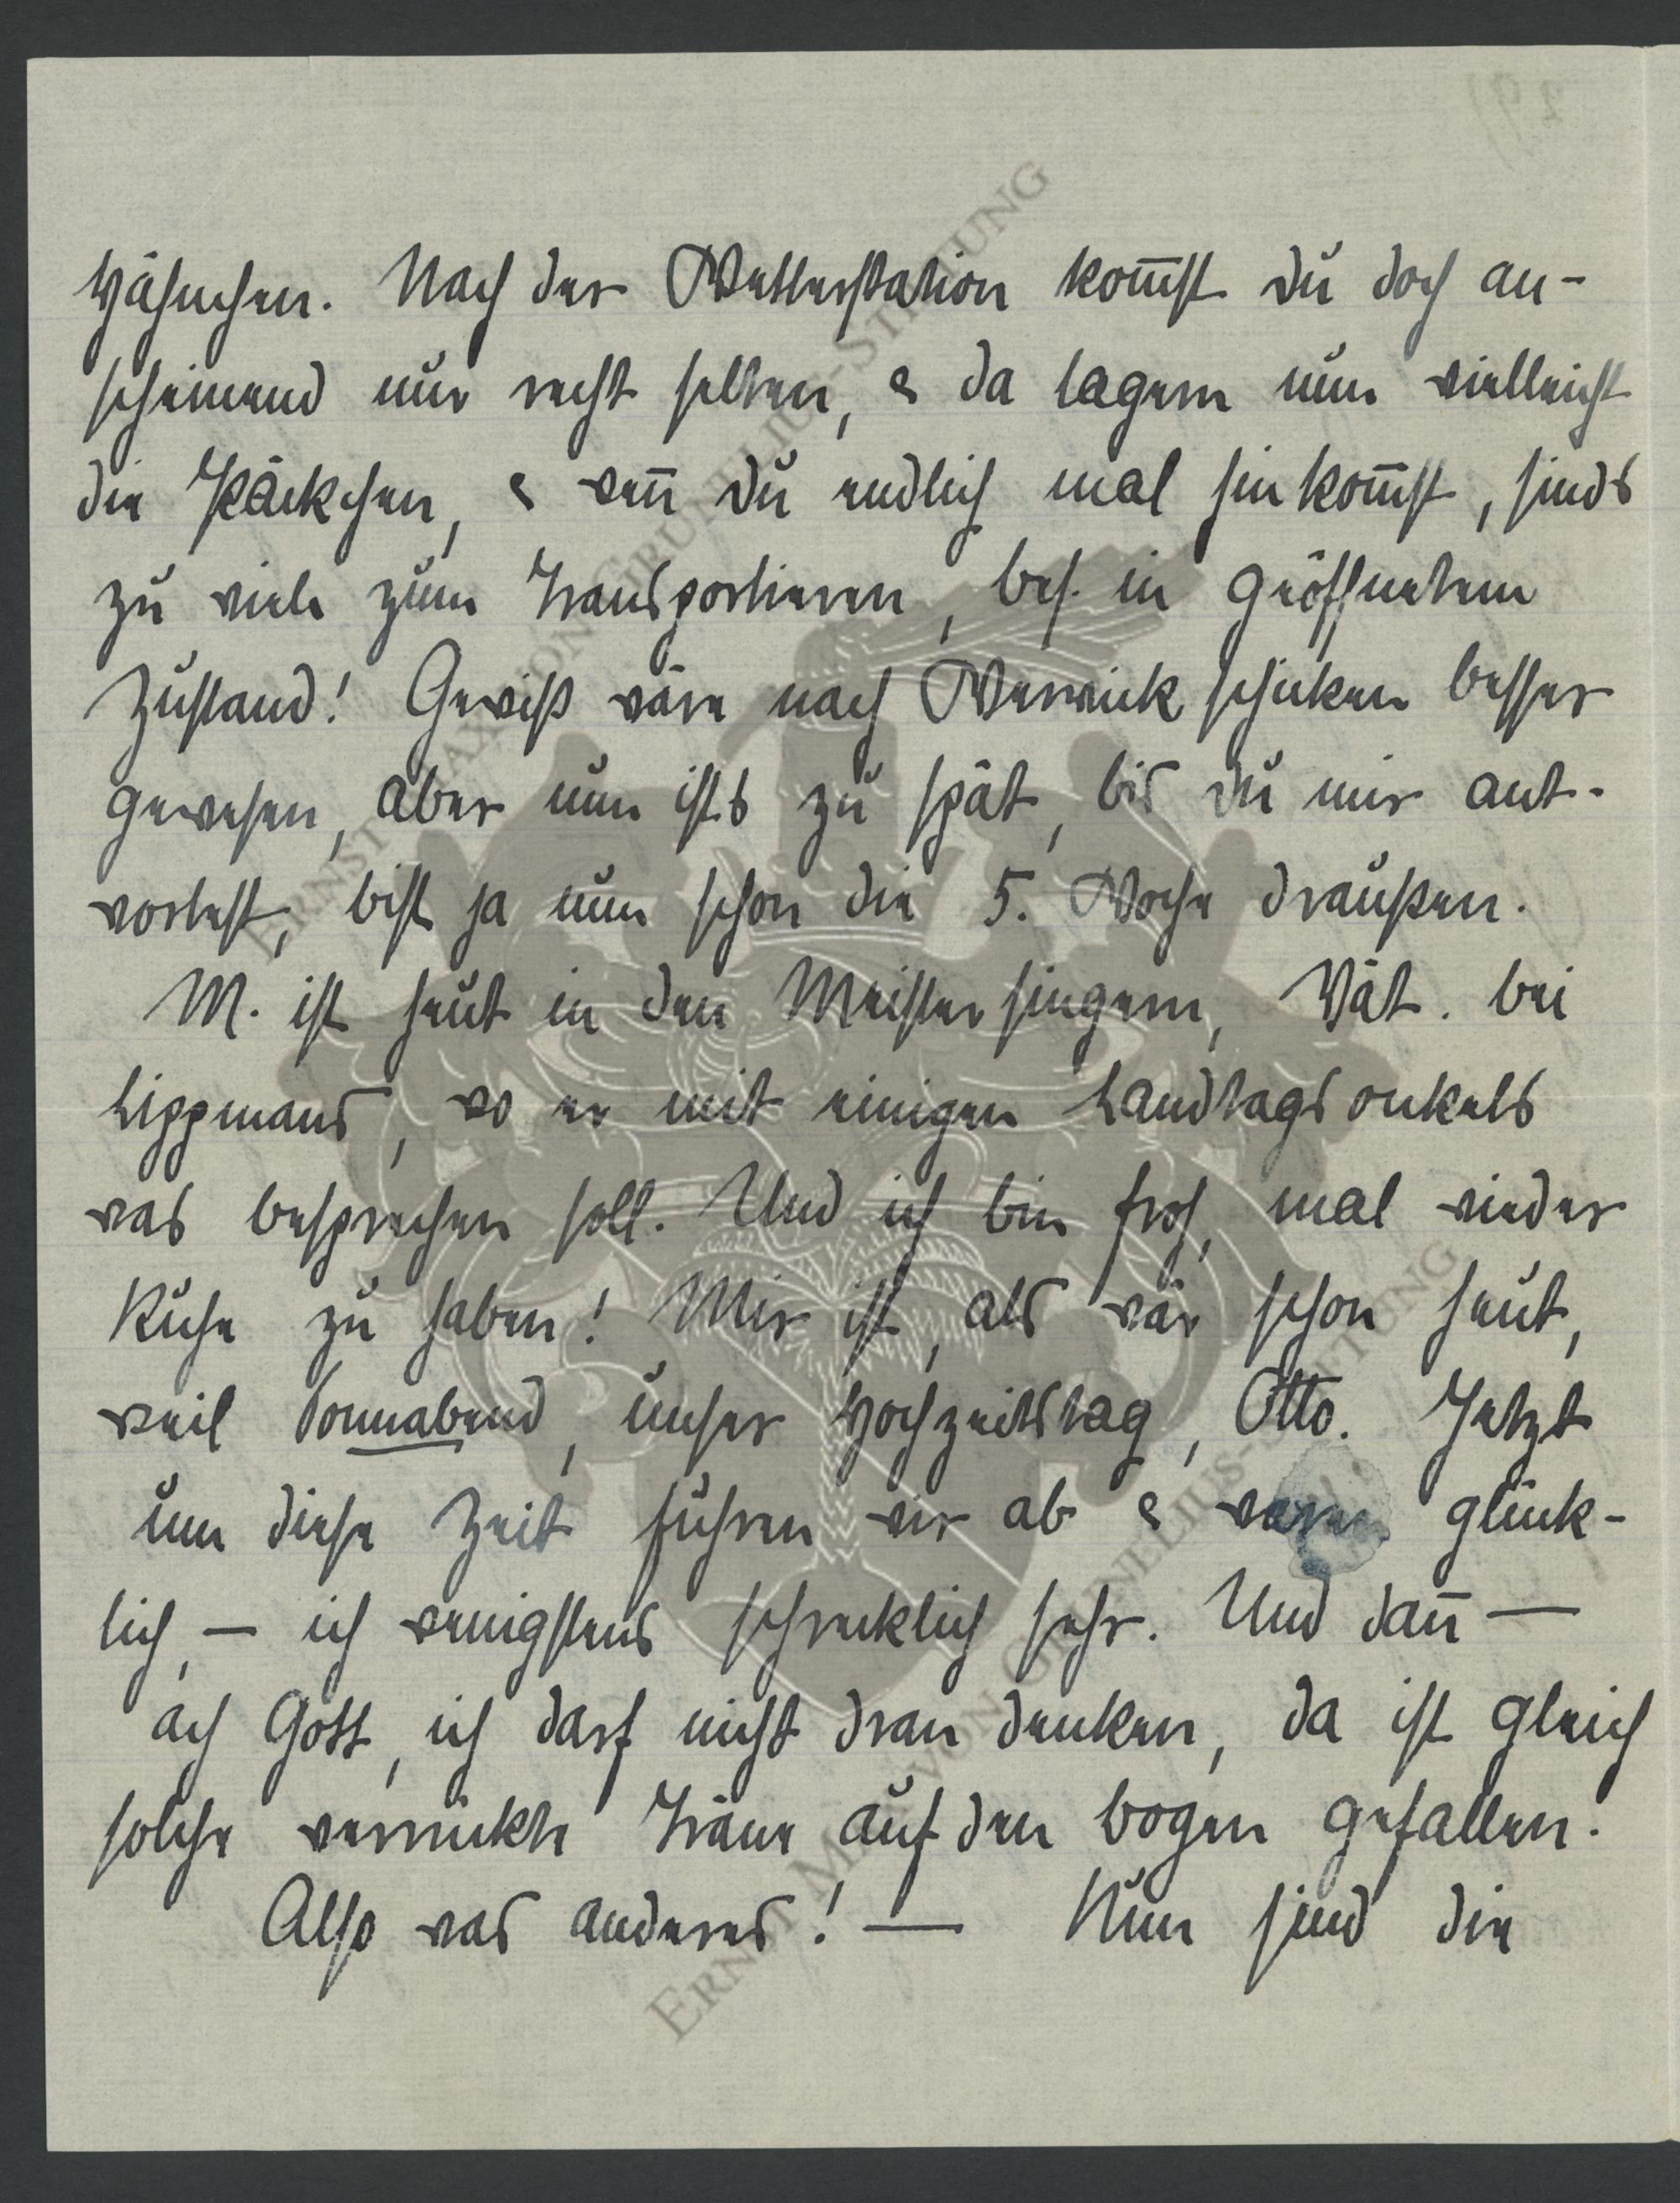 Hähnchen. Nach der Wetterstation kom̅st du doch an-
scheinend nur recht selten, & da lagern nun vielleicht
die Päckchen, & wen̅ du endlich mal hinkom̅st, sinds
zu viele zum Transportieren, bes. in geöffnetem
Zustand! Gewiß wäre nach Werwick schicken besser
gewesen, aber nun ists zu spät, bis du mir ant-
wortest, bist ja nun schon die 5. Woche draußen.
M. ist heut in den Meistersingern, Vät. bei
Lippmans, wo er mit einigen Landtagsonkels
was besprechen soll. Und ich bin froh, mal wieder
Ruhe zu haben! Mir ist, als wär schon heut,
weil Sonnabend, unser Hochzeitstag, Otto. Jetzt
um diese Zeit fuhren wir ab & waren glück-
lich, – ich wenigstens schrecklich sehr. Und dan̅ —
ach Gott, ich darf nicht dran denken, da ist gleich
solche verrückte Träne auf den Bogen gefallen.
Also was anderes! — Nun sind die
ERNST MAX VON GRUNELIUS-STIFTUNG
ERNST MAX VON GRUNELIUS-STIFTUNG